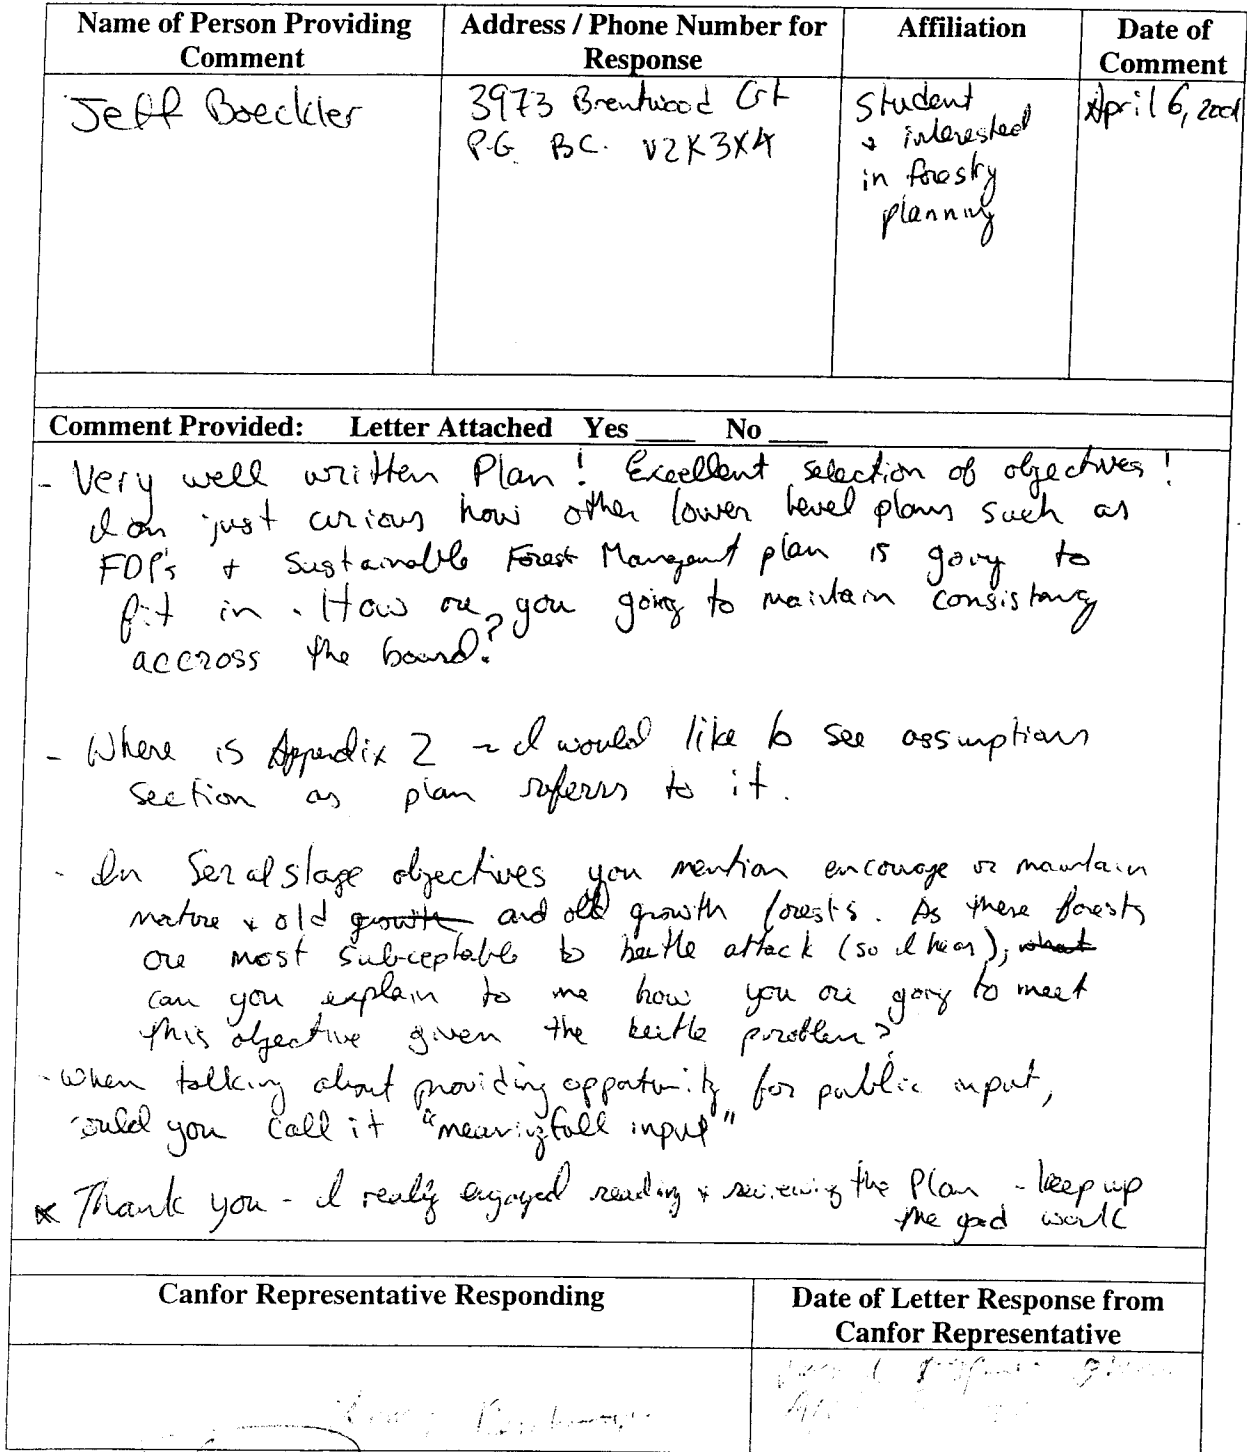 Name of Person Providing Comment
Address / Phone Number for Response
Affiliation
Date of Comment
Jeff Boeckler
3973 Brentwood Crt
P.G. B.C. V2K3X4
Student
+ interested
in forestry
planning
April 6, 2001
Comment Provided: Letter Attached Yes ____ No ____
- Very well written Plan! Excellent selection of objectives!
I am just curious how other lower level plans such as
FDP's + Sustainable Forest Management plan is going to
fit in. How are you going to maintain consistancy
accross the board?
- Where is Appendix 2 - I would like to see assumptions
section as plan referrs to it.
- In Seral stage objectives you mention encourage or maintain
mature + old growth and old growth forests. As these forests
are most subceptable to beetle attack (so I hear), what
can you explain to me how you are going to meet
this objective given the beetle problem?
- When talking about providing opportunity for public input,
would you call it "meaningfull input"
* Thank you - I really enjoyed reading + reviewing the Plan - keep up
the good work
Canfor Representative Responding
Date of Letter Response from Canfor Representative